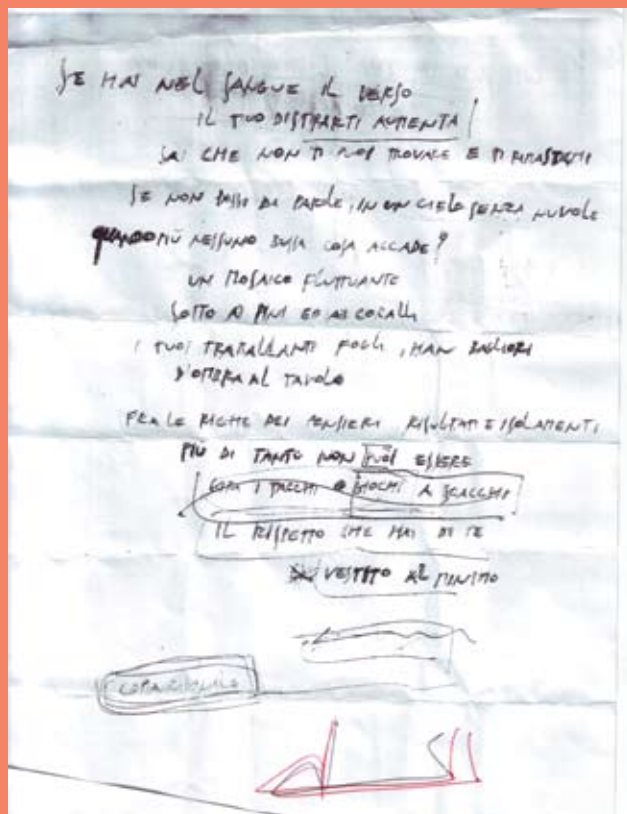 SE HAI NEL SANGUE IL VERSO
IL TUO DISTRARTI AUMENTA
SAI CHE NON TI PUOI TROVARE E TI
SE NON PASSI DI PAROLE, IN UN CIELO SENZA NUVOLE
QUANDO PIÙ NESSUNO BUSSA COSA ACCADE?
UN MOSAICO FLUTTUANTE
SOTTO AI PINI ED AI
I TUOI FOGLI, HAN BAGLIORI
D'OMBRA AL TAVOLO
FRA LE RIGHE DEI PENSIERI RISULTATI E ISOLAMENTI
PIÙ DI TANTO NON PUOI ESSERE
I TACCHI O GIOCHI A SCACCHI
IL RISPETTO CHE HAI DI TE
VESTITO AL MINIMO